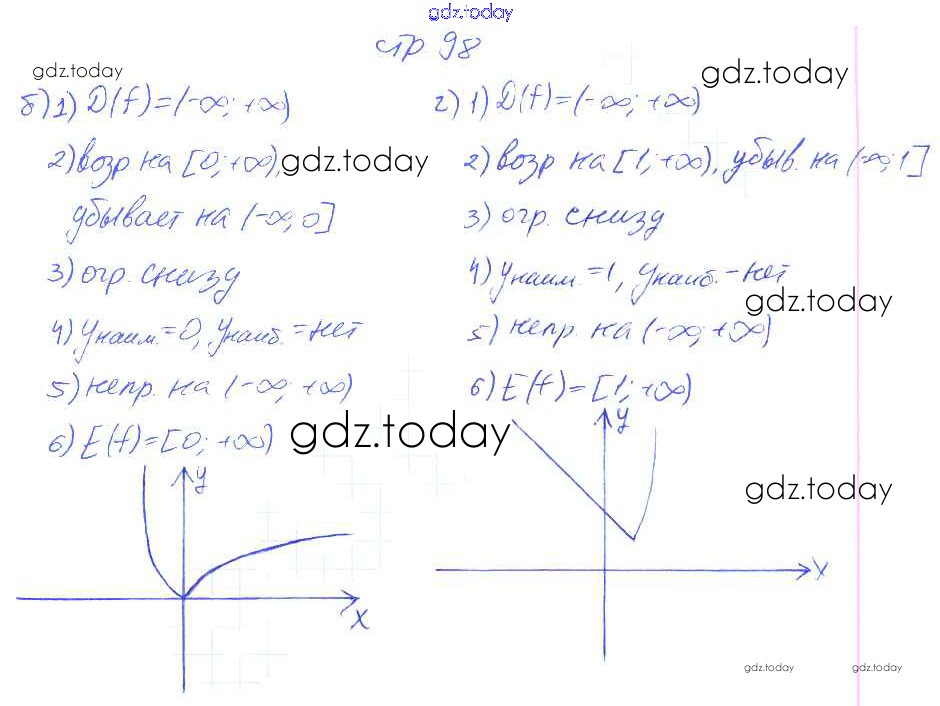 gdz.today
стр 98
gdz.today
gdz.today
б) 1) D(f)=(-∞; +∞)
2) возр на [0; +∞), gdz.today
убывает на (-∞; 0]
3) огр. снизу
4) yнаим.=0, yнаиб.=нет
5) непр. на (-∞; +∞)
6) E(f)=[0; +∞) gdz.today
y
x
г) 1) D(f)=(-∞; +∞)
2) возр на [1; +∞), убыв. на (-∞; 1]
3) огр. снизу
4) yнаим.=1, yнаиб.-нет
gdz.today
5) непр. на (-∞; +∞)
6) E(f)=[1; +∞)
y
gdz.today
x
gdz.today
gdz.today